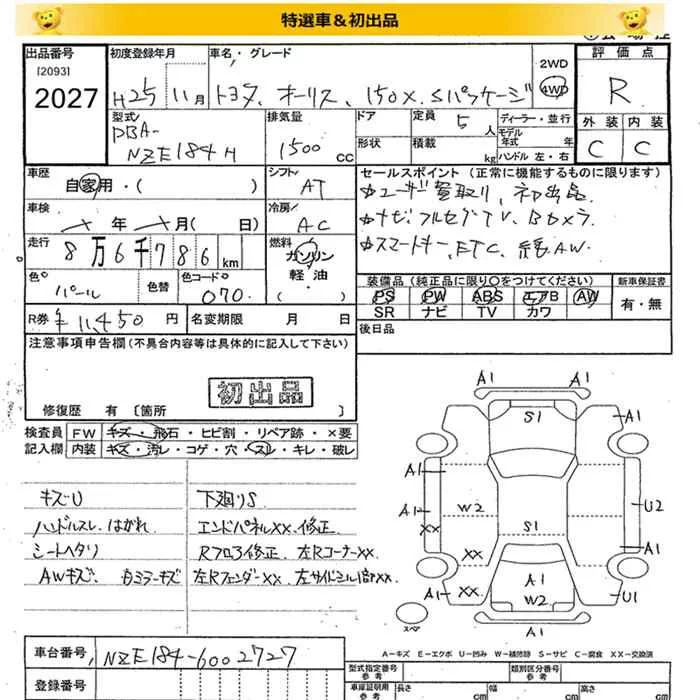 特選車＆初出品
出品番号
[2093]
2027
初度登録年月
H25 11月
車名・グレード
トヨタ、オーリス、150X、Sパッケージ
2WD
4WD
評価点
R
型式
DBA-
NZE184H
排気量
1500 CC
ドア
形状
定員 5 人
積載 kg
ディーラー・並行
モデル
年式 年
ハンドル 左・右
外装 内装
C C
車歴
自家用・( )
シフト
AT
セールスポイント (正常に機能するものに限ります)
☆ユーザー買取り、初出品、
☆ナビ、フルセグTV、Bカメラ
☆スマートキー、ETC、純AW、
車検
年 月( 日)
冷房
AC
走行
8万6千786 km
燃料
ガソリン
軽油
( )
色
パール
色替
色コード
070
装備品 (純正品に限り○をつけてください)
PS PW ABS エアB AW
SR ナビ TV カワ
新車保証書
有・無
R券 ¥11,450 円
名変期限 月 日
後日品
注意事項申告欄 (不具合内容等は具体的に記入して下さい)
初出品
修復歴 有 〔箇所 〕
検査員
記入欄
FW キズ・飛石・ヒビ割・リペア跡・×要
内装 キズ・汚レ・コゲ・穴・スレ・キレ・破レ
キズU
ハンドルスレ、はがれ
シートヘタリ
AWキズ、カミラーキズ
下廻りS
エンドパネルXX、修正
Rフロア修正 左RコーナーXX
左RフェンダーXX、左サイドシル
A1 A1
S1
A1
A1
A1 W2 U2
XX S1
XX A1
A1
A1 XX W2 U1
A1
スペア
A-キズ E-エクボ U-凹み W-補修跡 S-サビ C-腐食 XX-交換済
車台番号 NZE184-6002727
登録番号
型式指定番号
参考
類別区分番号
参考
車庫証明用
参考
長さ cm 幅 cm 高さ cm